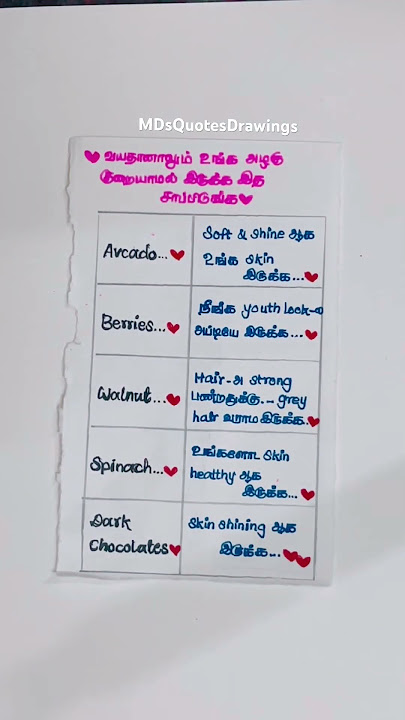 MDsQuotesDrawings
வயதானாலும் உங்க அழகு
குறையாமல் இருக்க இத
சாப்பிடுங்க
Avcado...
Soft & Shine ஆக
உங்க skin
இருக்க...
Berries...
நீங்க youth look-ல
அப்டியே இருக்க...
Walnut...
Hair-அ strong
பண்றதுக்கு... grey
hair வராம இருக்க.
Spinach...
உங்களோட skin
healthy ஆக
இருக்க...
Dark
Chocolates
Skin shining ஆக
இருக்க...